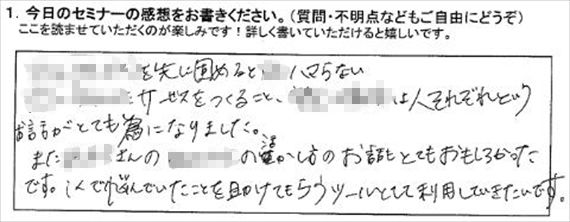 1. 今日のセミナーの感想をお書きください。(質問・不明点などもご自由にどうぞ)
ここを読ませていただくのが楽しみです!詳しく書いていただけると嬉しいです。
を先に固めると ハマらない
サービスをつくること、 は人それぞれという
お話がとても為になりました。
また さんの の活かし方のお話もとてもおもしろかった
です。 悩んでいたことを助けてもらうツールとして利用していきたいです。